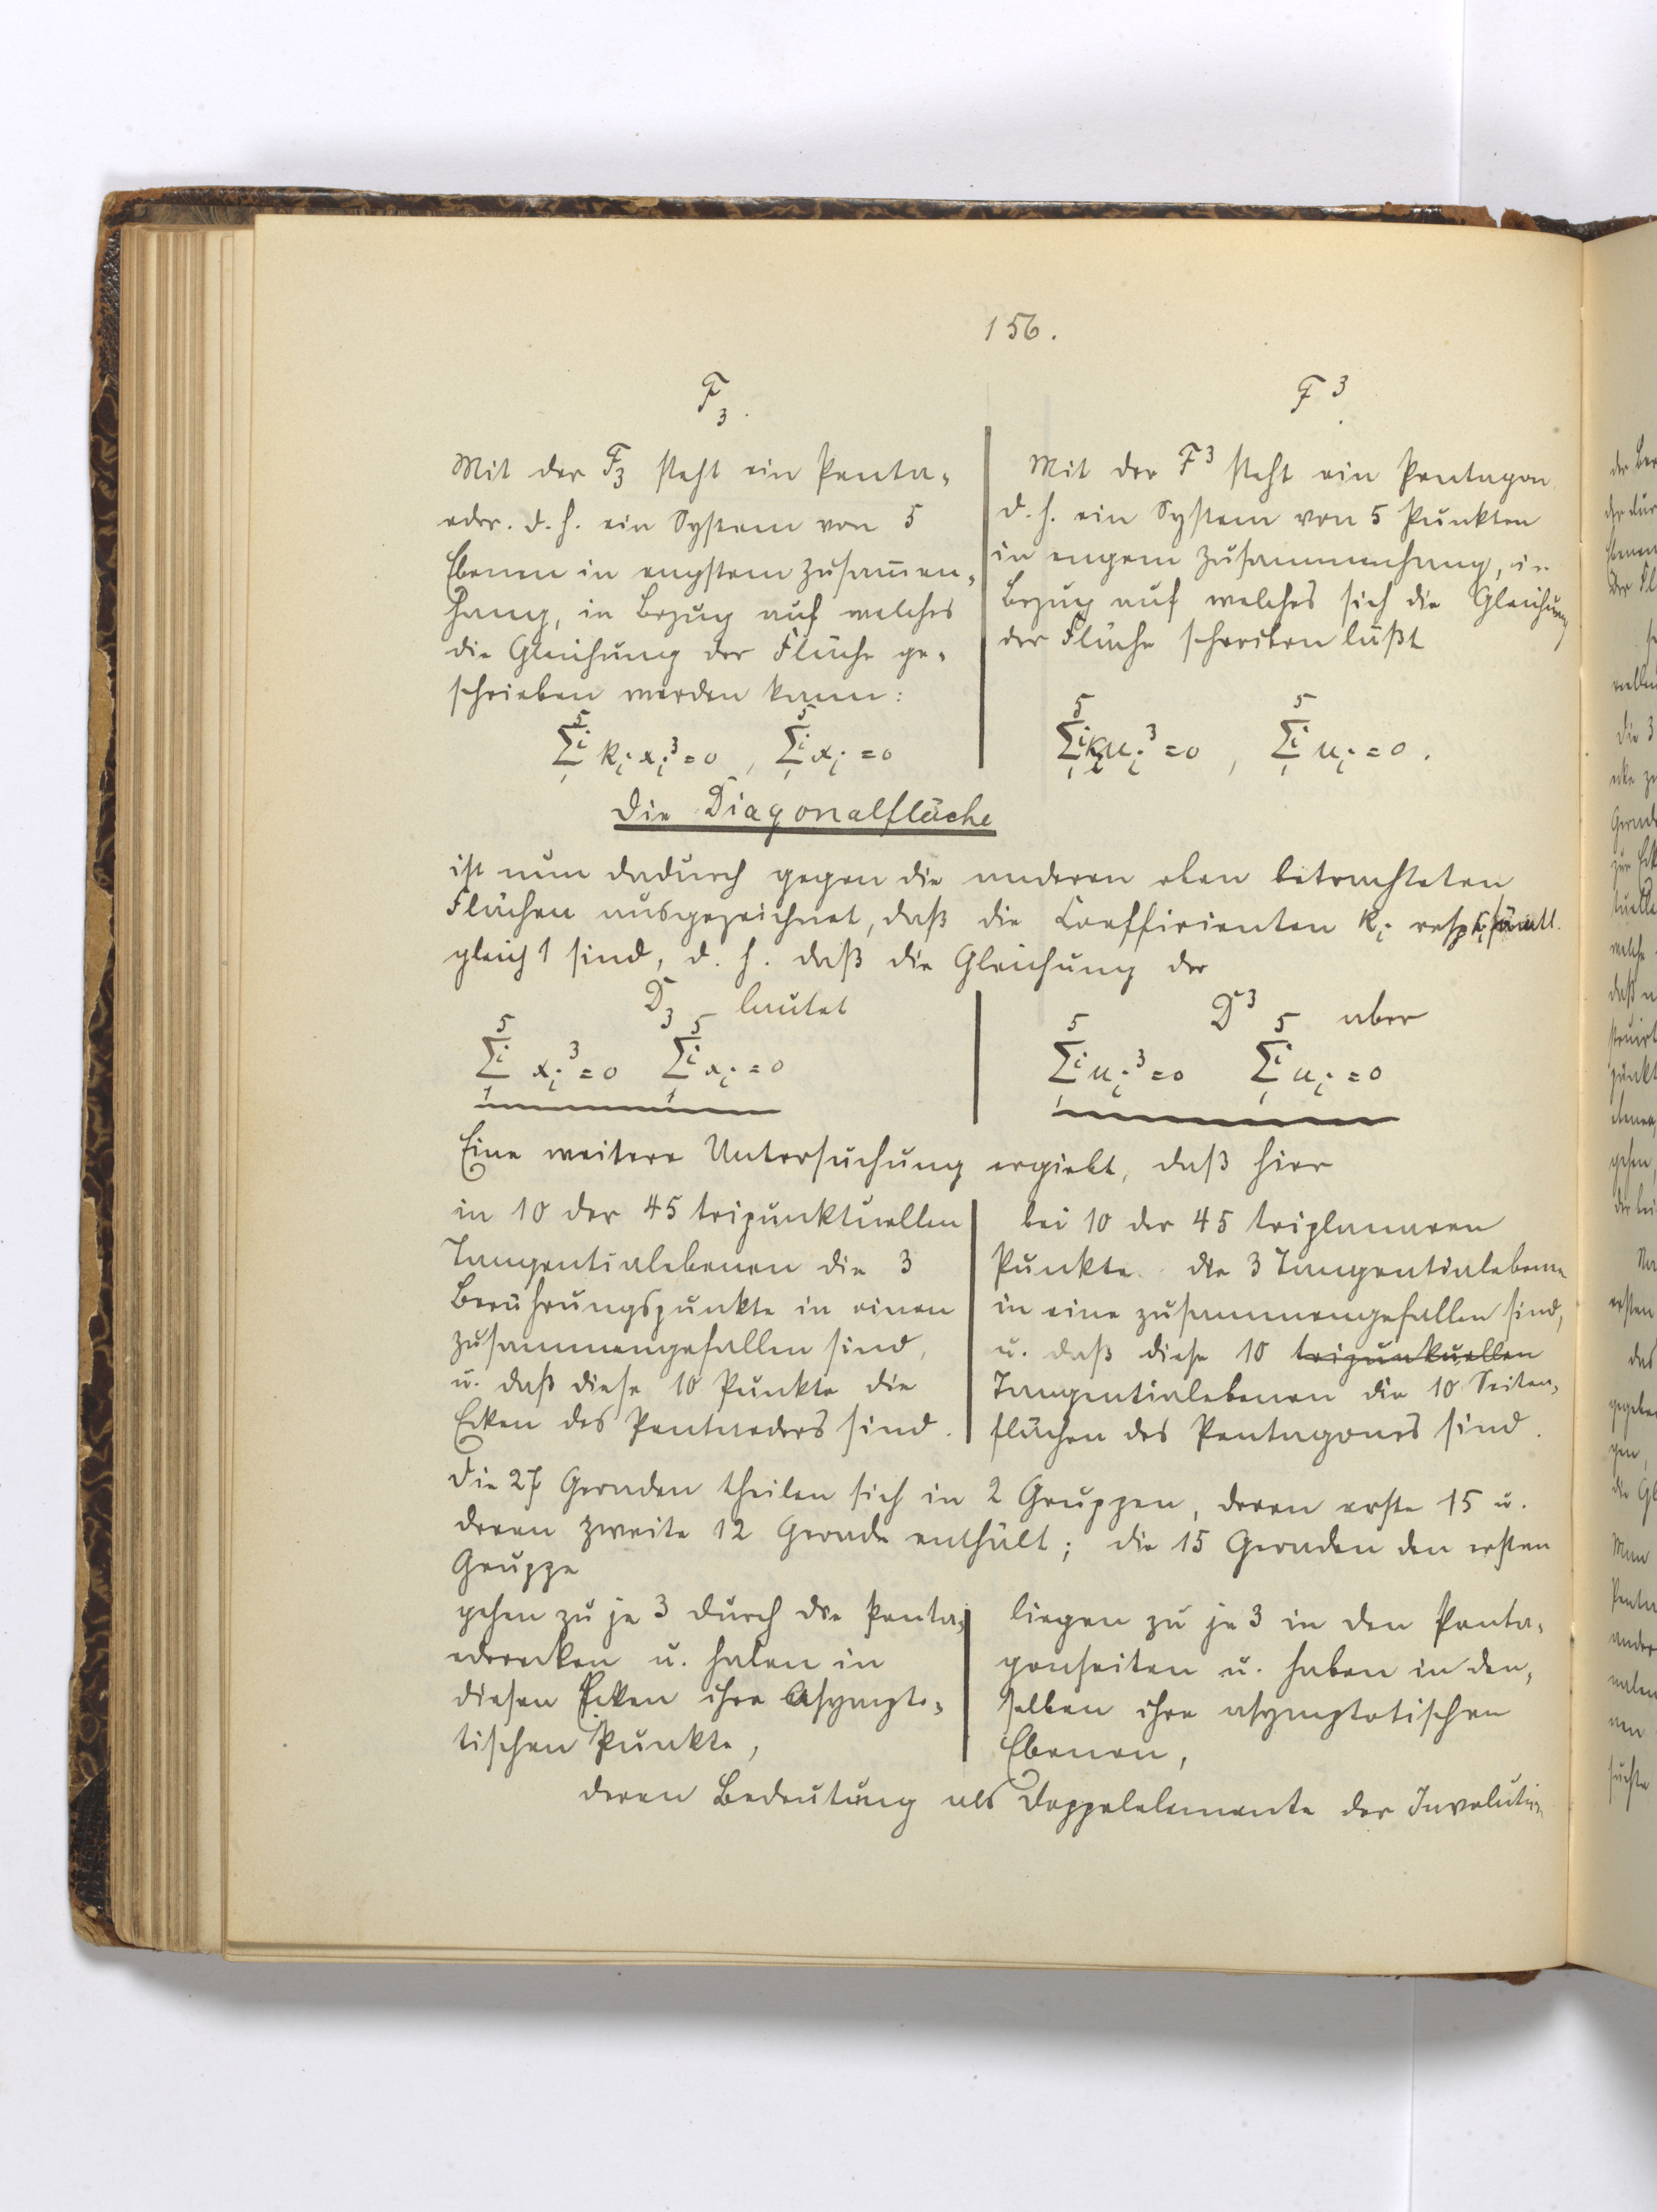 156.
F₃.
Mit der F₃ steht ein Penta-
eder. d. h. ein System von 5
Ebenen in engstem Zusam̄en-
hang, in Bezug auf welches
die Gleichung der Fläche ge-
schrieben werden kann:
5 5
Σⁱ kᵢ xᵢ³ = 0 , Σⁱ xᵢ = 0
1 1
F³
Mit der F³ steht ein Pentagon
d. h. ein System von 5 Punkten
in engem Zusammenhang, in
Bezug auf welches sich die Gleichung
der Fläche schreiben läßt
5 5
Σⁱ kᵢ uᵢ³ = 0 , Σⁱ uᵢ = 0 .
1 1
Die Diagonalfläche
ist nun dadurch gegen die anderen oben betrachteten
Flächen ausgezeichnet, daß die Coefficienten kᵢ resp. sämtl.
gleich 1 sind, d. h. daß die Gleichung der
D₃ lautet
5 5
Σⁱ xᵢ³ = 0 Σⁱ xᵢ = 0
1 1
D³ aber
5 5
Σⁱ uᵢ³ = 0 Σⁱ uᵢ = 0
1 1
Eine weitere Untersuchung ergiebt, daß hier
in 10 der 45 tripunktuellen
Tangentialebenen die 3
Berührungspunkte in einen
zusammengefallen sind,
u. daß diese 10 Punkte die
Ecken des Pentaeders sind.
bei 10 der 45 triplanaren
Punkte die 3 Tangentialebenen
in eine zusammengefallen sind,
u. daß diese 10 tripunkuellen
Tangentialebenen die 10 Seiten-
flächen des Pentagones sind.
Die 27 Geraden theilen sich in 2 Gruppen, deren erste 15 u.
deren zweite 12 Gerade enthält; die 15 Geraden den ersten
Gruppe
gehen zu je 3 durch die Penta-
ederecken u. haben in
diesen Ecken ihre Asympto-
tischen Punkte,
liegen zu je 3 in den Penta-
gonseiten u. haben in den-
selben ihre asymptotischen
Ebenen,
deren Bedeutung als Doppelelemente der Involution